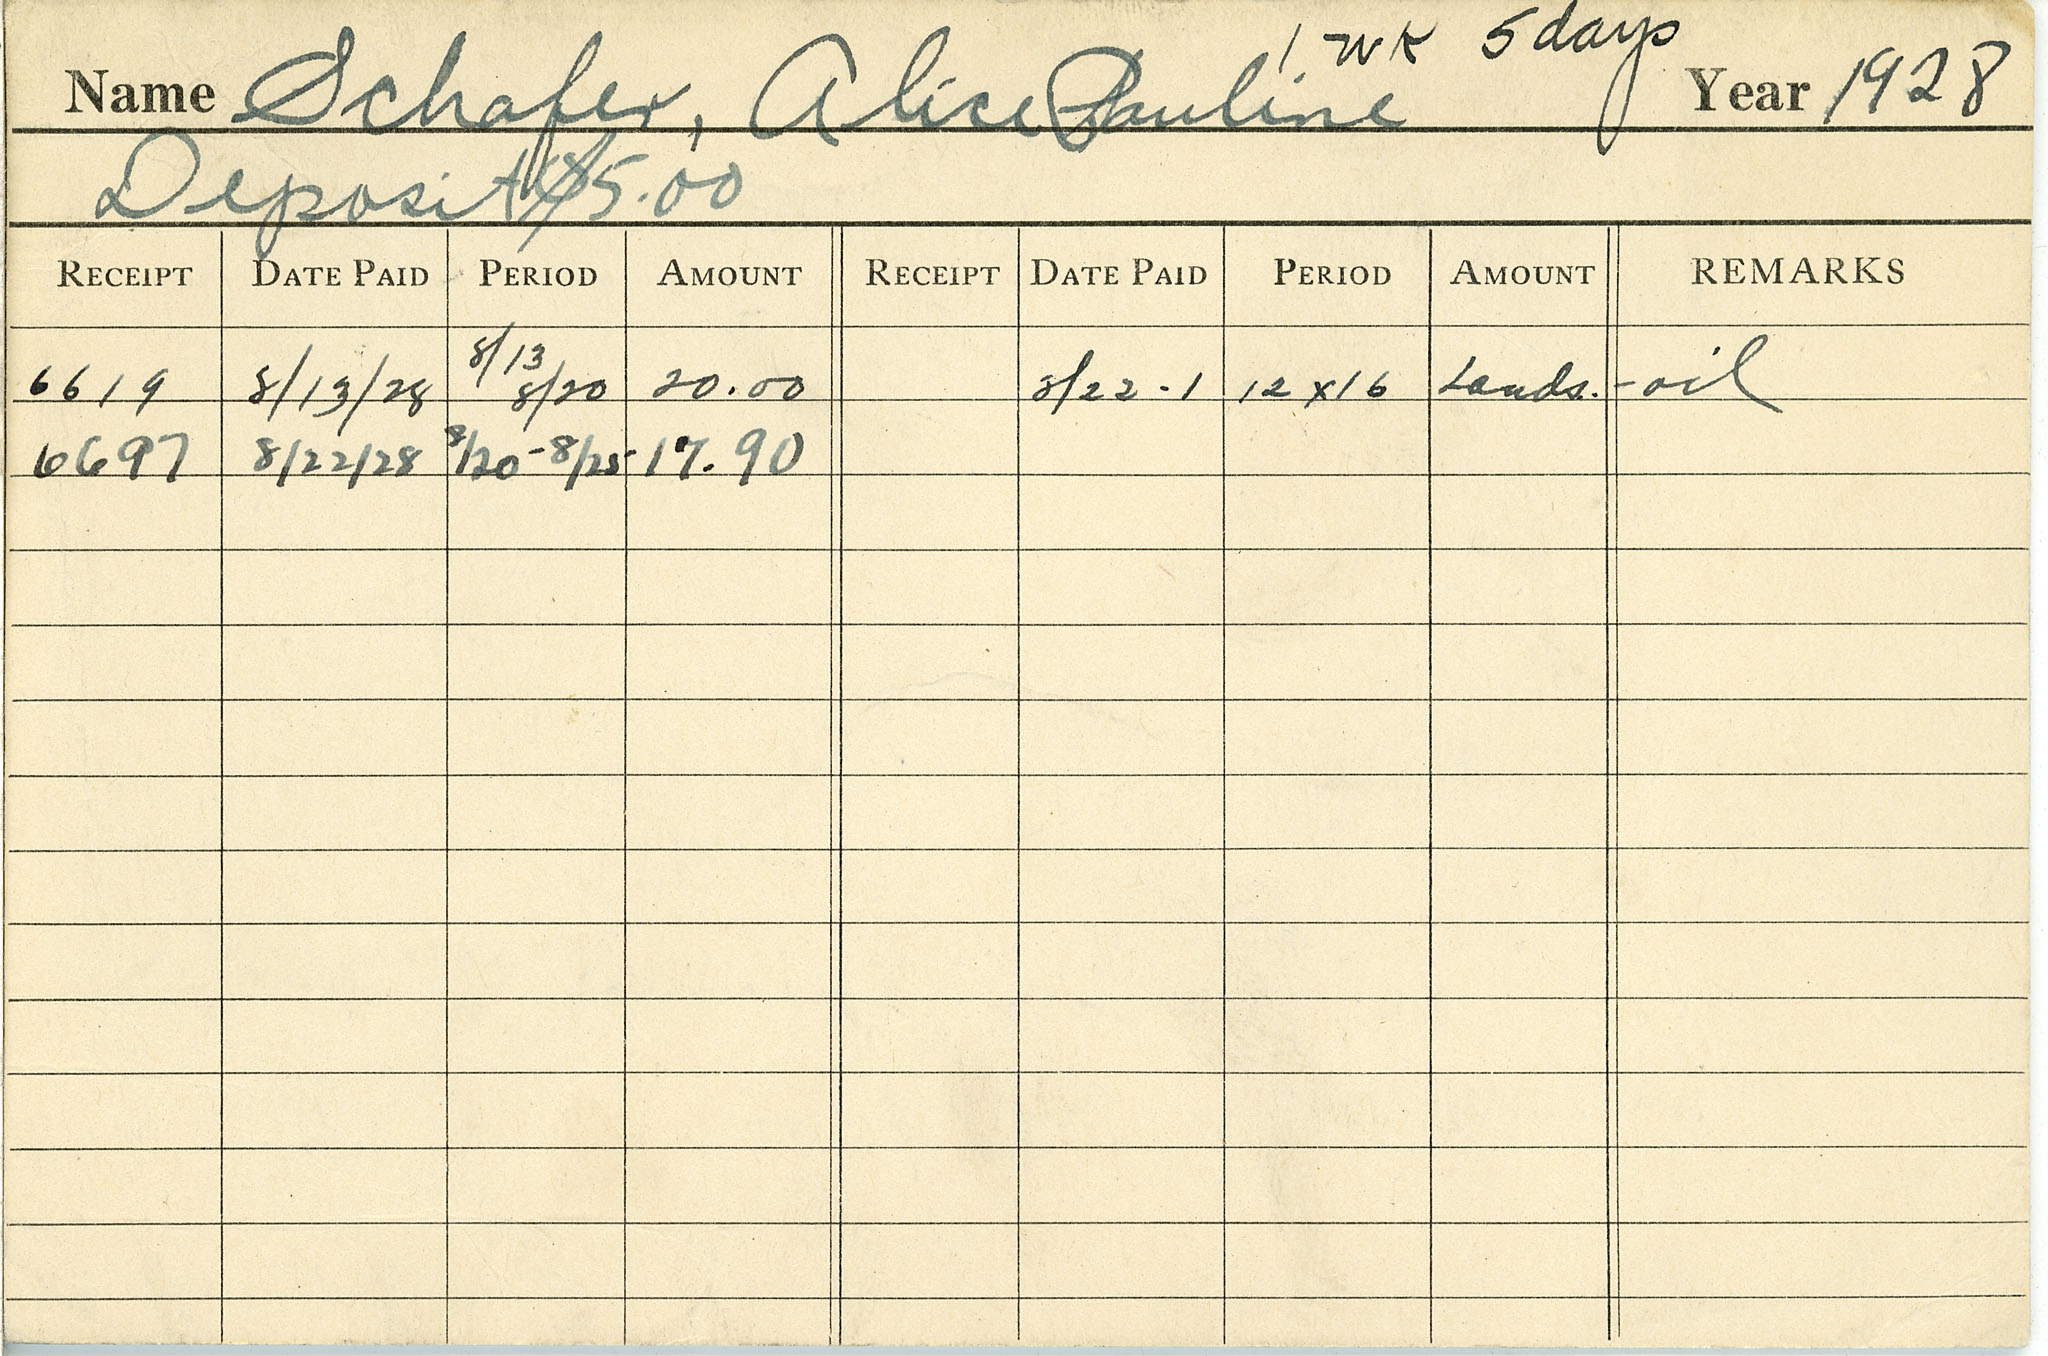 1 wk 5 days
Name Schafer, Alice Pauline Year 1928
Deposit $5.00
RECEIPT DATE PAID PERIOD AMOUNT RECEIPT DATE PAID PERIOD AMOUNT REMARKS
6619 8/13/28 8/13 8/20 20.00 8/22-1 12x16 Lands.-oil
6697 8/22/28 8/20-8/25 17.90